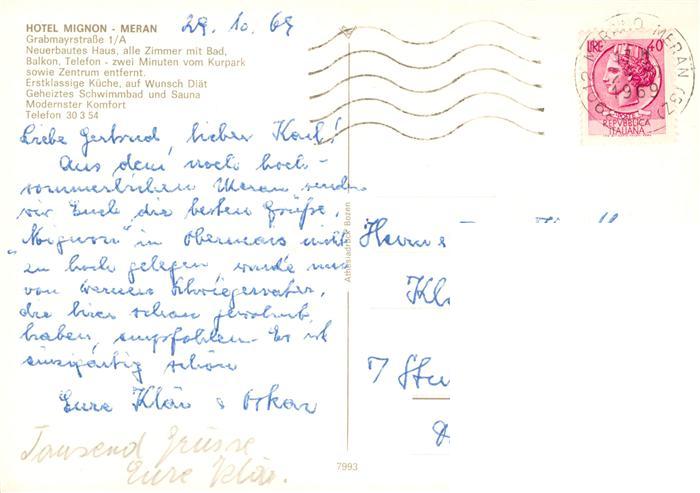 HOTEL MIGNON - MERAN
Grabmayrstraße 1/A
Neuerbautes Haus, alle Zimmer mit Bad,
Balkon, Telefon - zwei Minuten vom Kurpark
sowie Zentrum entfernt.
Erstklassige Küche, auf Wunsch Diät
Geheiztes Schwimmbad und Sauna
Modernster Komfort
Telefon 30 3 54
29. 10. 69
Liebe Gertrud, lieber Karl!
Aus dem noch hoch-
sommerlichen Meran senden
wir Euch die besten Grüße,
"Mignon" in Obermais nicht
zu hoch gelegen, wurde uns
von Schwiegervater,
die hier schon gewohnt
haben, empfohlen. Es ist
einzigartig schön
Eure Klär & Oskar
Tausend Grüsse
Eure Klär.
Athesiadruck Bozen
7993
LIRE 40
POSTE
REPVBBLICA
ITALIANA
39012 MERANO MERAN (BZ)
1969
Herrn
Kl
7 Stu